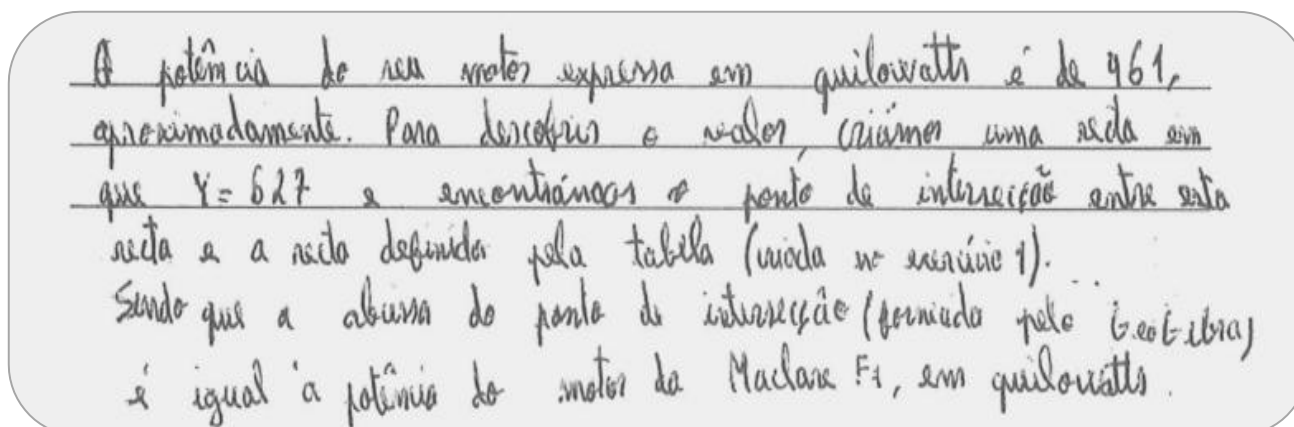 A potência do seu motor expressa em quilowatts é de 461,
aproximadamente. Para descobrir o valor, criámos uma recta em
que Y = 627 e encontrámos o ponto de intersecção entre esta
recta e a recta definida pela tabela (criada no exercício 1).
Sendo que a abcissa do ponto de intersecção (fornecida pelo GeoGebra)
é igual à potência do motor do Maclare F1, em quilowatts.